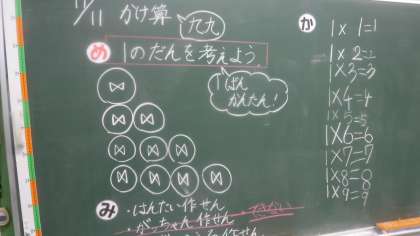 11/11 かけ算 九九
め 1のだんを考えよう。
1ばん
かんたん!
み ・はんたい作せん
・がっちゃん作せん
か
1×1=1
1×2=2
1×3=3
1×4=4
1×5=5
1×6=6
1×7=7
1×8=8
1×9=9